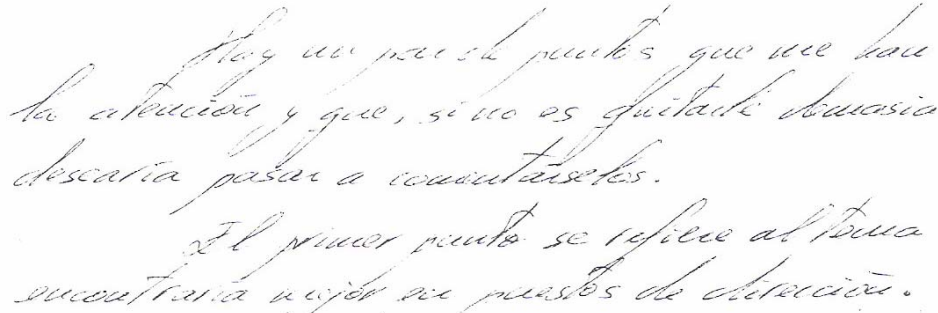 Hay un par de puntos que me han
la atención y que, si no es quitarle demasia
desearía pasar a comentárselos.
El primer punto se refiere al tema
encontraría mejor en puestos de dirección.